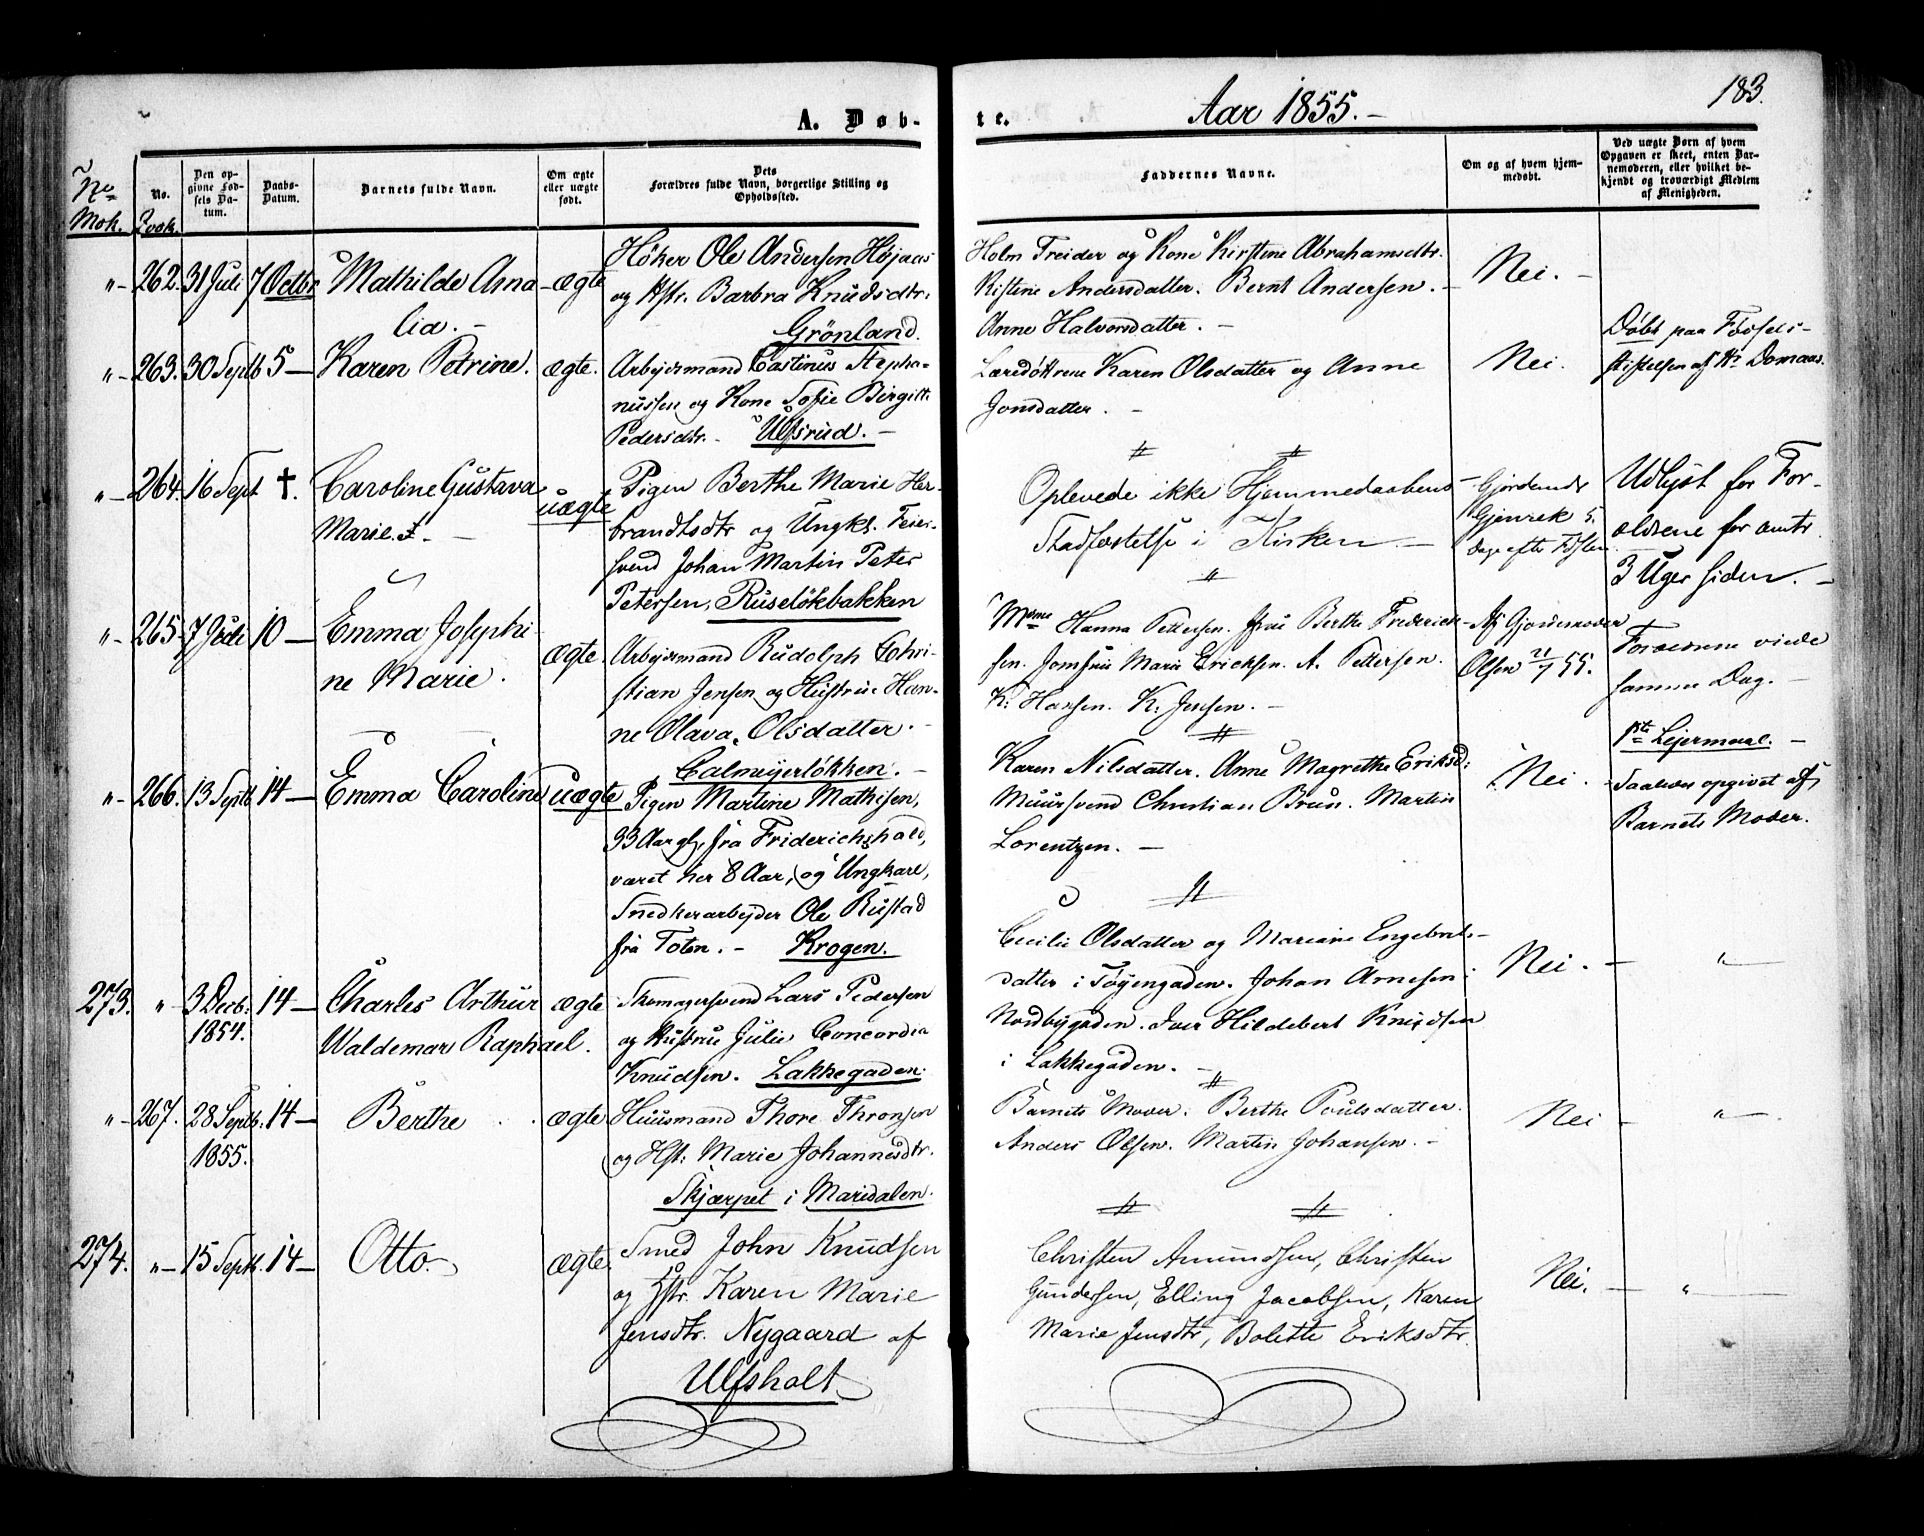 183.
A. Døb-
te.
Aar 1855.-
No Mok.
No. Qvok.
Den opgivne Fødsels Datum.
Daabs-Datum.
Barnets fulde Navn.
Om ægte eller uægte født.
Dets Forældres fulde Navn, borgerlige Stilling og Opholdssted.
Faddernes Navne.
Om og af hvem hjemmedøbt.
Ved uægte Børn af hvem Opgaven er skeet, enten Barnemoderen, eller hvilket bekjendt og troværdigt Medlem af Menigheden.
"- 262. 31 Juli 7 Octbr Mathilde Ama- ægte
lia.-
Høker Ole Andersen Højaas
og Hstr. Barbra Knudsdtr.
Grönland.
Holm Treider og Kone Kirstine Abrahamsdtr.
Kistine Andersdatter. Bernt Andersen.
Anne Halvorsdatter.-
Nei.-
"- 263. 30 Septb 5- Karen Petrine. ægte.
Arbejdsmand Castinus Stepha-
nussen og Kone Sofie Birgitte
Pedersdtr.- Ulfsrud.-
Læredøttrene Karen Olsdatter og Anne
Jonsdatter.-
Nei.
Døbt paa Fødsels-
stiftelsen af Hr Domaas.
"- 264. 16 Sept †. Caroline Gustava uægte
Marie. †.-
Pigen Berthe Marie Her-
brandtsdtr og Ungk. Feier-
svend Johan Martin Peter
Petersen, Ruseløkbakken
Oplevede ikke Hjemmedaabens
Stadfæstelse i Kirken.-
Gjordemdr
Gjenrek 5.
dage efter Fødslen.
Udlyst for For-
ældrene for omtr
3 Uger siden.-
"- 265. 7 Juli 10- Emma Josephi-
ne Marie. ægte.
Arbejdsmand Rudolph Chri-
stian Jensen og Hustrue Han-
ne Olava Olsdatter.-
Calmeijerløkken.-
Mme Hanna Pettersen. Fru Berthe Frederick-
sen. Jomfrue Marie Ericksen. A. Pettersen.
K. Hansen. K. Jensen.-
Af Gjordemoder
Olsen 21/7 55.
Forældrene viede
samme Dag.-
"- 266. 13 Septb 14- Emma Caroline uægte
Pigen Martine Mathisen,
33 Aar gl, fra Friderichshald,
været her 8 Aar, og Ungkarl,
Snedkerarbejder Ole Rustad
fra Toten.- Krogen.
Karen Nilsdatter. Anne Magrethe Eriksd:
Muursvend Christian Brun. Martin
Lorentzen.-
Nei.
1ste Lejermaal.-
Saaledes opgivet af
Barnets Moder.
273. "- 3 Decb. 1854. 14- Charles Arthur ægte
Waldemar Raphael.
Skomagersvend Lars Pedersen
og Hustru Julie Concordia
Knudsen. Lakkegaden.
Cecilie Olsdatter og Mariane Engebrets-
datter i Tøyengaden. Johan Arnesen i
Nordbygaden. Iver Hildebert Knudsen
i Lakkegaden.-
Nei.- "-
"- 267. 28 Septb. 1855. 14- Berthe ægte
Huusmand Thore Thronsen
og Hst: Marie Johannesdtr.
Skjærpet i Maridalen.
Barnets Moder. Berthe Poulsdatter.
Anders Olsen. Martin Johansen.-
Nei- "-
274. "- 15 Septb. 14- Otto. ægte
Smed John Knudsen
og Hstr. Karen Marie
Jensdtr. Nygaard af
Ulfsholt
Christen Amundsen, Christen
Gundersen, Elling Jacobsen, Karen
Marie Jensdtr, Bolette Eriksdtr.
Nei.- "-